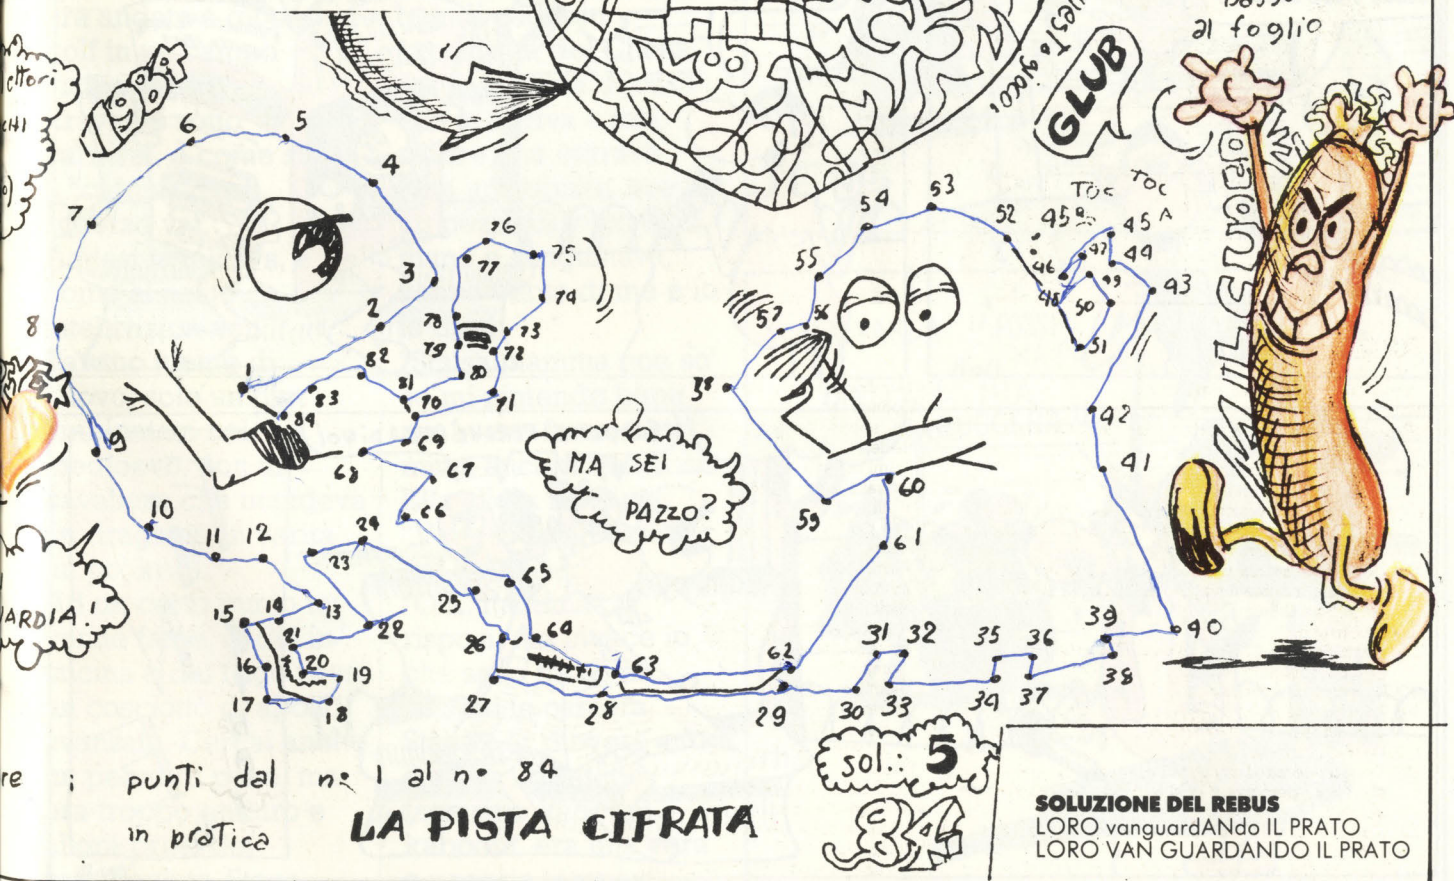 basso
al foglio
questo gioco.
GLUB
ettori
CHI
ARDIA!
TOC TOC
6 5
4
7
3
2
8
1
9
10
11 12
13
14
15
16
17
18
19
20
21
22
23
24
25
26
27
28
29
30
31 32
33
34
35 36
37
38
39
40
41
42
43
44
45 A
45 B
46
47
48
49
50
51
52
53
54
55
56
57
58
59
60
61
62
63
64
65
66
67
68
69
70
71
72
73
74
75
76
77
78
79
80
81
82
83
84
MA SEI
PAZZO?
re i punti dal n° 1 al n° 84
in pratica
LA PISTA CIFRATA
sol.: 5
84
SOLUZIONE DEL REBUS
LORO vanguardANdo IL PRATO
LORO VAN GUARDANDO IL PRATO